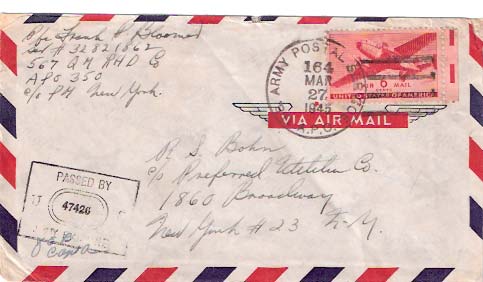 Pfc Frank P. Broomer
Ser # 32821862
567 Q M RHD Co
APO 350
c/o PM New York.
U.S. ARMY POSTAL SERVICE
164
MAR
27
1945
A.P.O.
AIR MAIL
6 CENTS
UNITED STATES OF AMERICA
VIA AIR MAIL
R S Bohn
c/o Preferred Utilities Co.
1860 Broadway
New York # 23 N.Y.
PASSED BY
U
47426